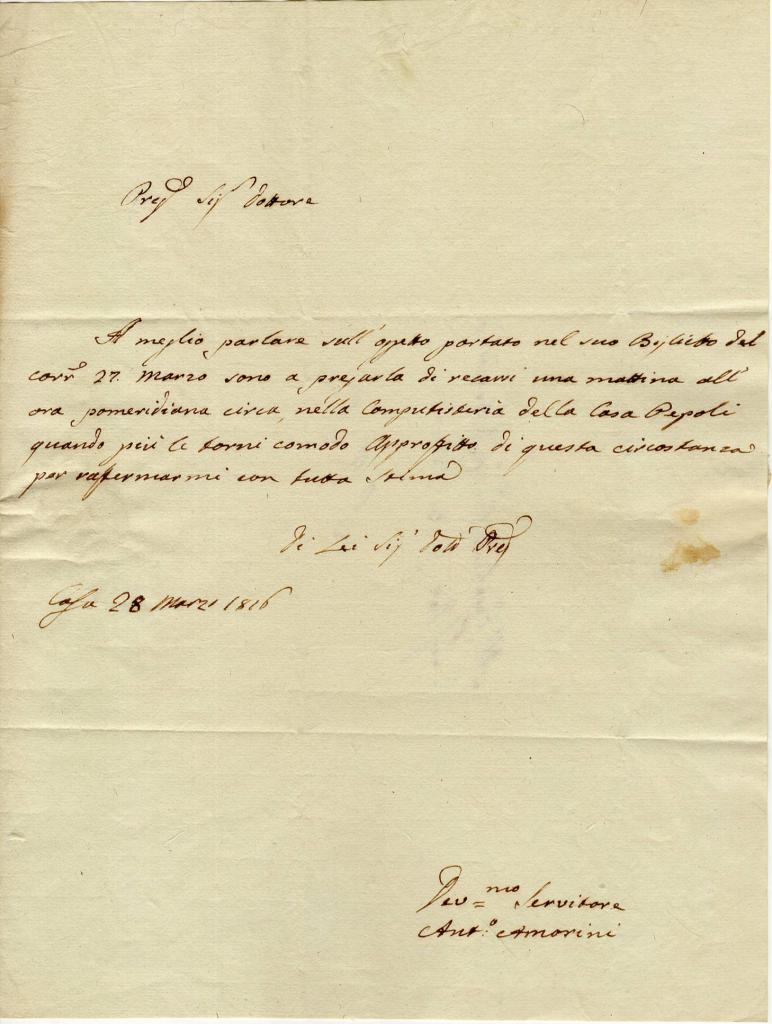 Preg.° Sig.r Dottore
A meglio parlare sull'oggetto portato nel suo Biglietto del
corr.e 27. Marzo sono a pregarla di recarsi una mattina all'
ora pomeridiana circa, nella Computisteria della Casa Pepoli
quando più le torni comodo Approffitto di questa circostanza
per raffermarmi con tutta stima
di Lei Sig.r Dott.r Preg.°
Casa 28 Marzo 1816
Dev.mo Servitore
Ant.° Amorini